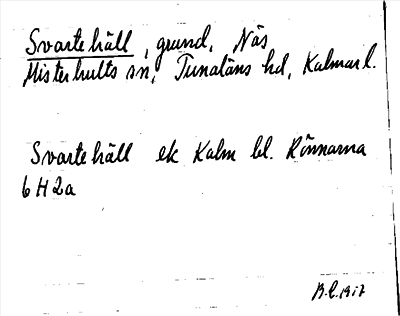 Svartehäll, grund, Näs
Misterhults sn, Tunaläns hd, Kalmar l.
Svartehäll ek Kalm bl. Rönnarna
6H2a